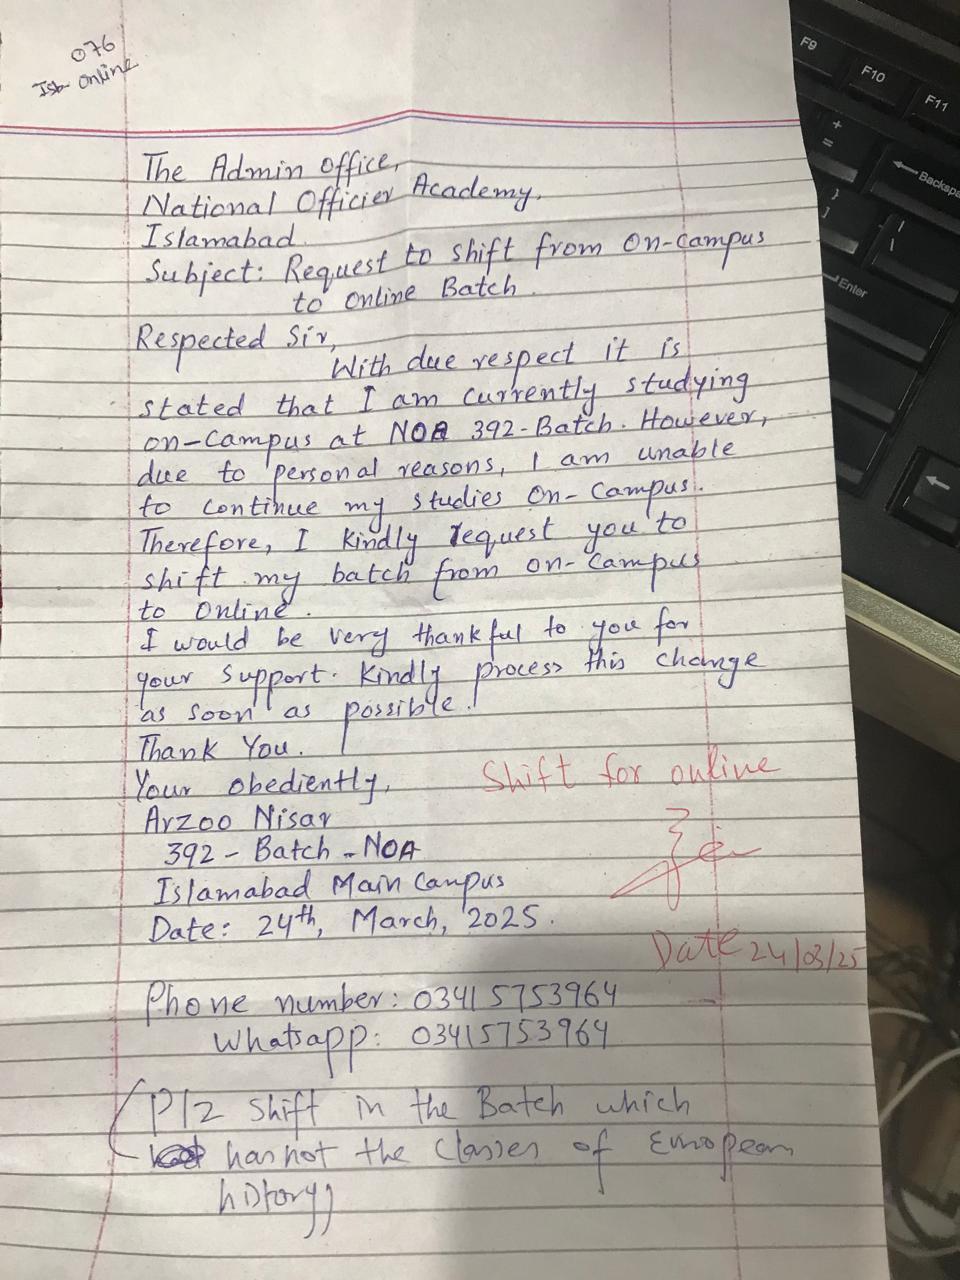 076
Isb online
The Admin office,
National Officier Academy,
Islamabad.
Subject: Request to shift from On-campus
to online Batch.
Respected Sir,
With due respect it is
stated that I am currently studying
on-campus at NOA 392-Batch. However,
due to personal reasons, I am unable
to continue my studies On-Campus.
Therefore, I kindly request you to
shift my batch from on-campus
to online.
I would be very thankful to you for
your support. Kindly process this change
as soon as possible.
Thank You.
Your obediently,
Shift for online
Arzoo Nisar
392-Batch-NOA
Islamabad Main Campus
Date: 24th, March, 2025.
Date 24/03/25
Phone number: 03415753964
Whatsapp: 03415753964
Plz shift in the Batch which
has not the classes of European
history)
F9
F10
F11
+
=
Backspa
}
]
|
\
Enter